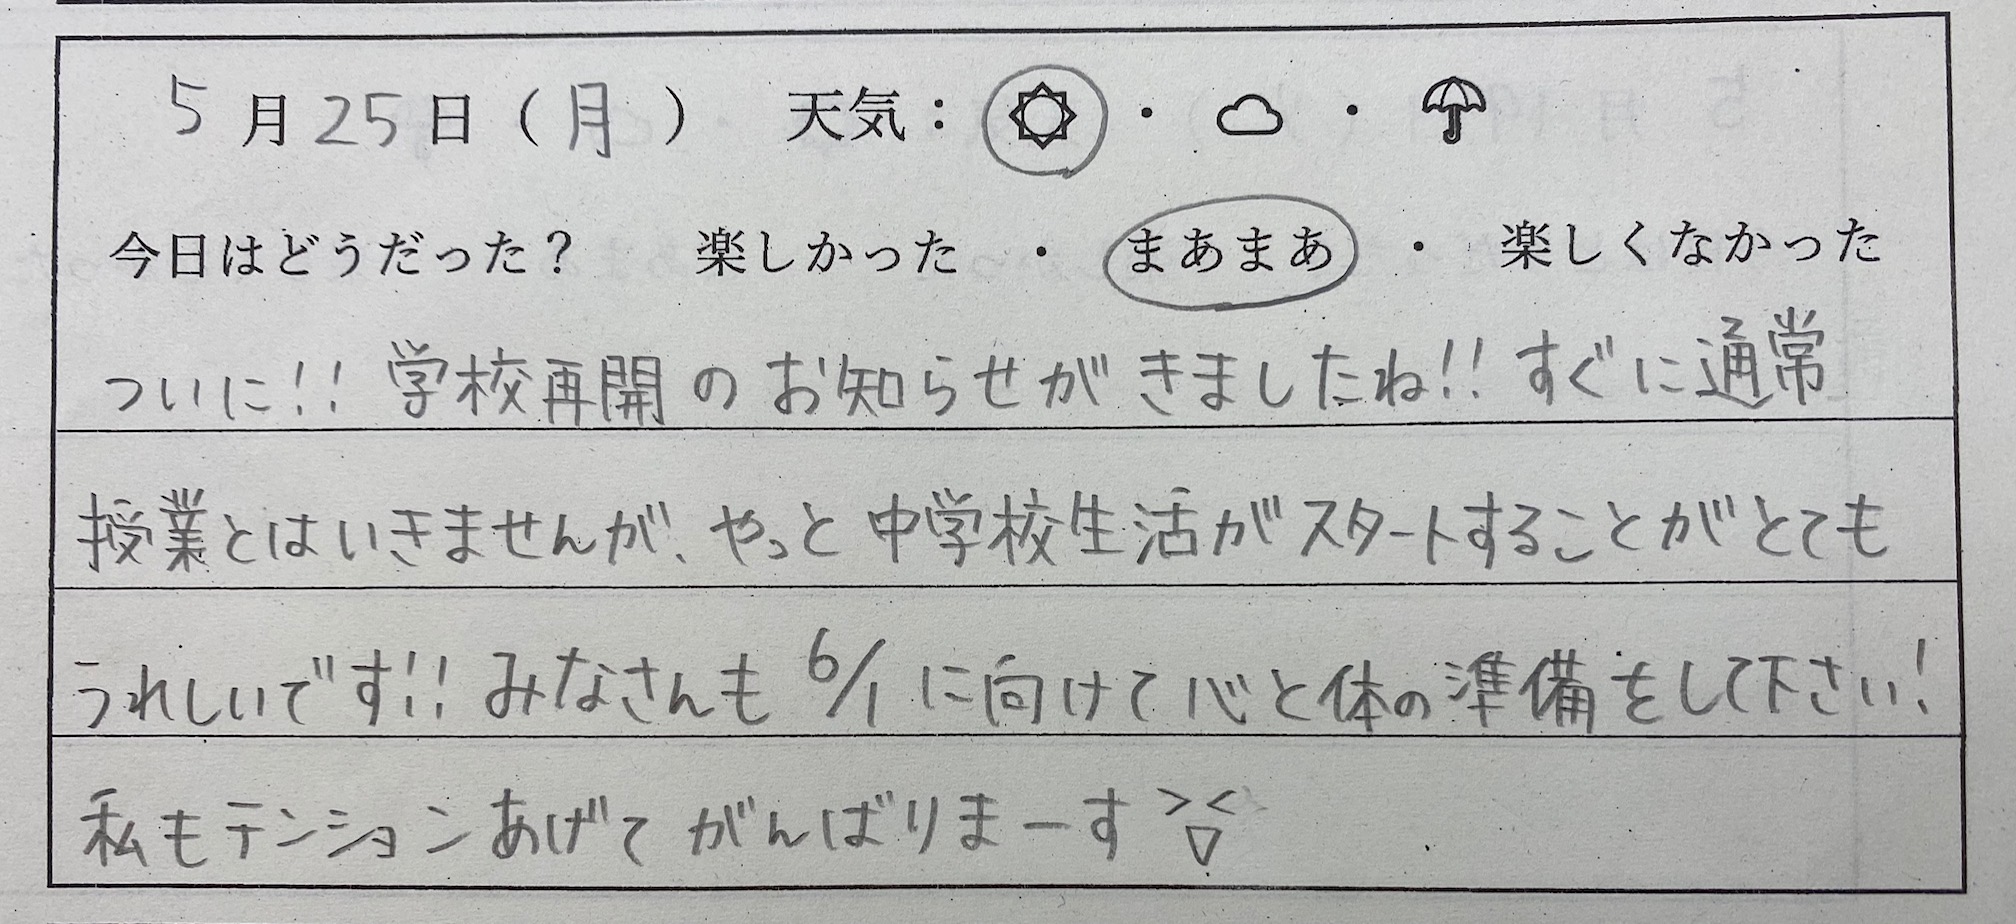 5月25日（月） 天気：☼・☁・☂
今日はどうだった？ 楽しかった ・ まあまあ ・ 楽しくなかった
ついに!! 学校再開のお知らせがきましたね!! すぐに通常
授業とはいきませんが、やっと中学校生活がスタートすることがとても
うれしいです!! みなさんも6/1に向けて心と体の準備をして下さい!
私もテンションあげてがんばりまーす